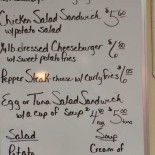 Chicken Salad Sandwich $5.60
w/ potato salad
1/4 lb. dressed Cheeseburger $6.80
w/ sweet potatoes
Pepper Steak cheese w/ curly fries $6.80
Egg or Tuna Salad Sandwich
w/ a cup of soup $4
Salad
Soup
Potato
Cream of